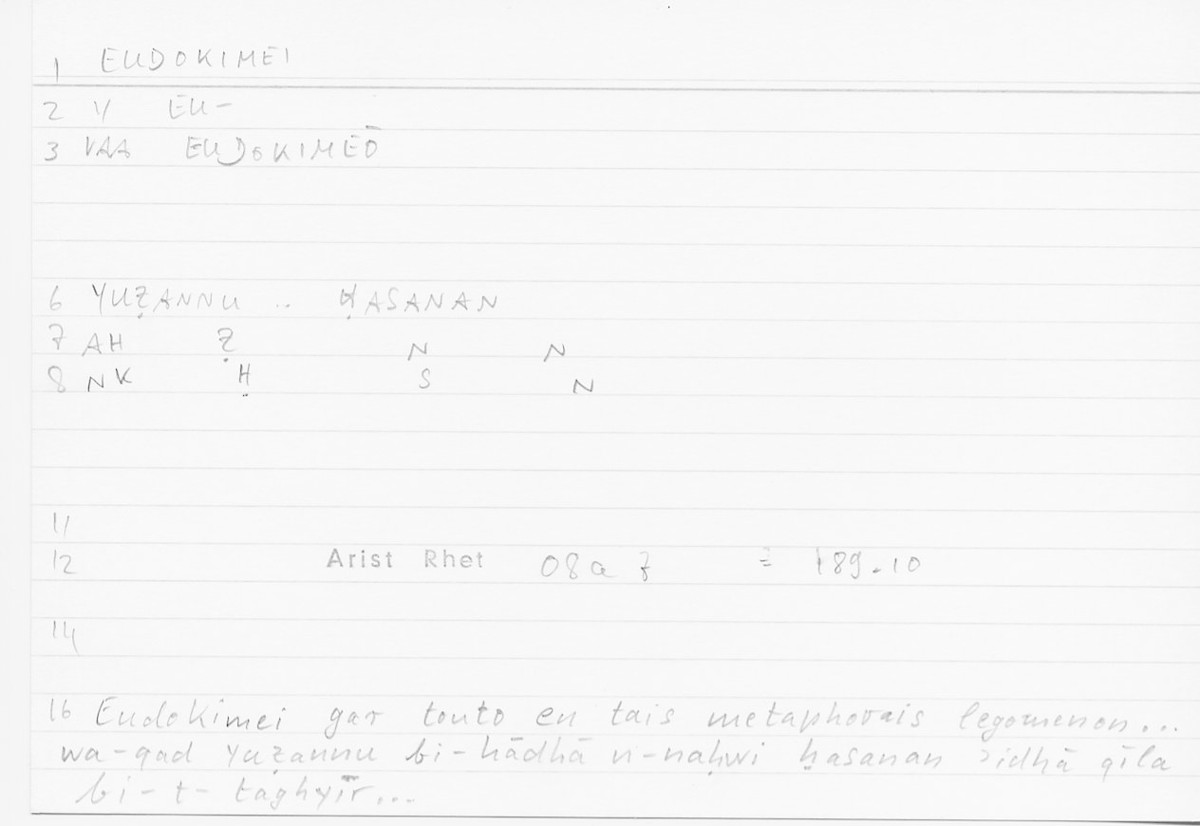 1 EUDOKIMEI
2 1/ EU-
3 VAA EUDOKIMEŌ
6 YUẒANNU .. ḤASANAN
7 AH Ẓ N N
8 NK Ḥ S N
11
12 Arist Rhet 08a 7 = 189.10
14
16 Eudokimei gar touto en tais metaphorais legomenon...
wa-qad yuẓannu bi-hādhā n-naḥwi ḥasanan ʾidhā qīla
bi-t-taghyīr...